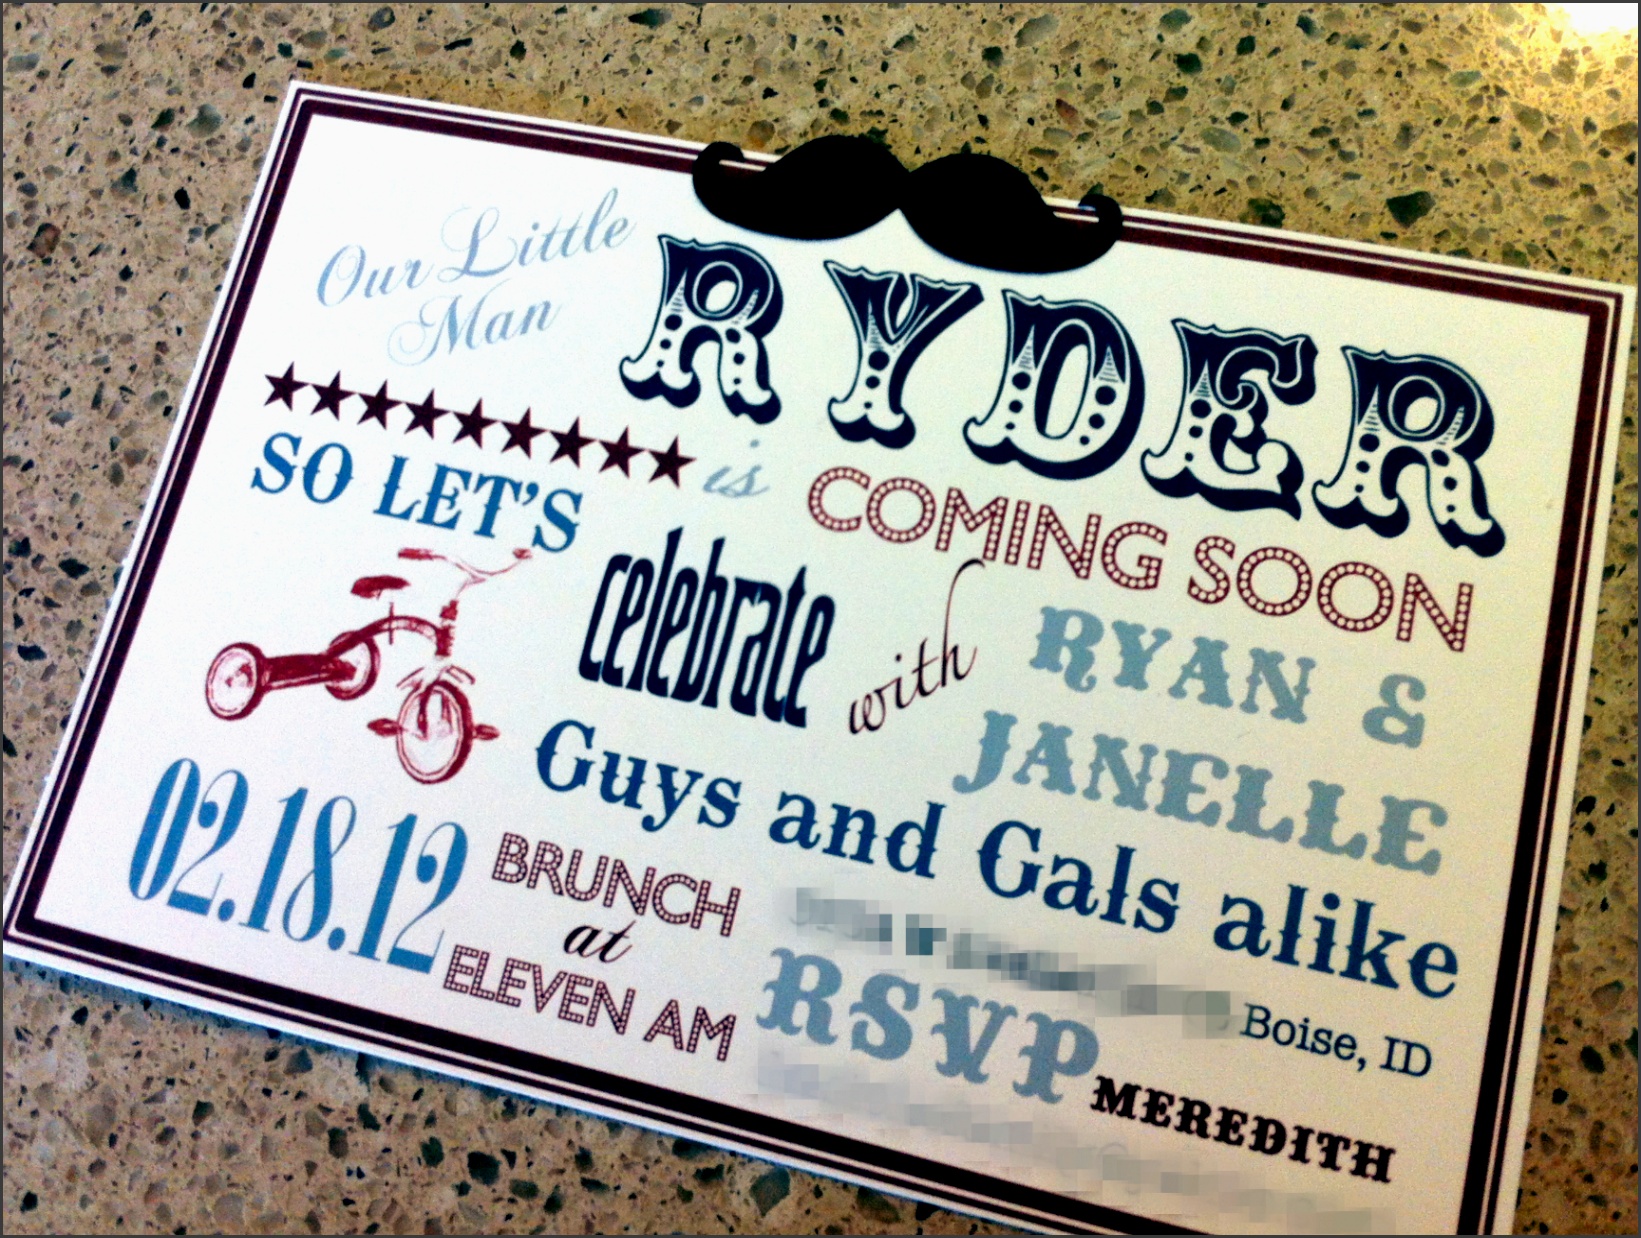 Our Little
Man
RYDER
is
COMING SOON
SO LET'S
celebrate
with
RYAN &
JANELLE
Guys and Gals alike
02.18.12
BRUNCH
at
ELEVEN AM
Boise, ID
RSVP
MEREDITH